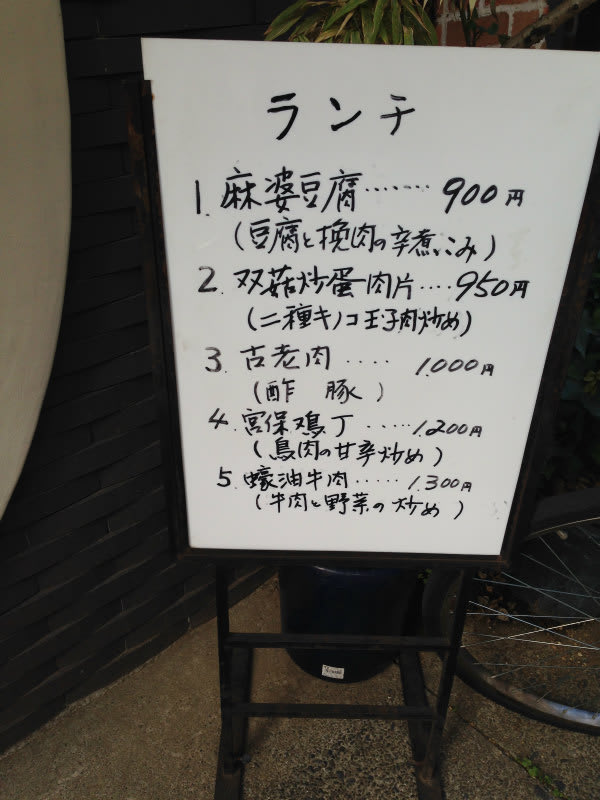 ランチ
1. 麻婆豆腐 ······· 900円
(豆腐と挽肉の辛煮こみ)
2. 双菇炒蛋肉片 ···· 950円
(二種キノコ玉子肉炒め)
3. 古老肉 ···· 1.000円
(酢 豚)
4. 宮保鶏丁 ····· 1.200円
(鳥肉の甘辛炒め)
5. 蠔油牛肉 ····· 1.300円
(牛肉と野菜の炒め)